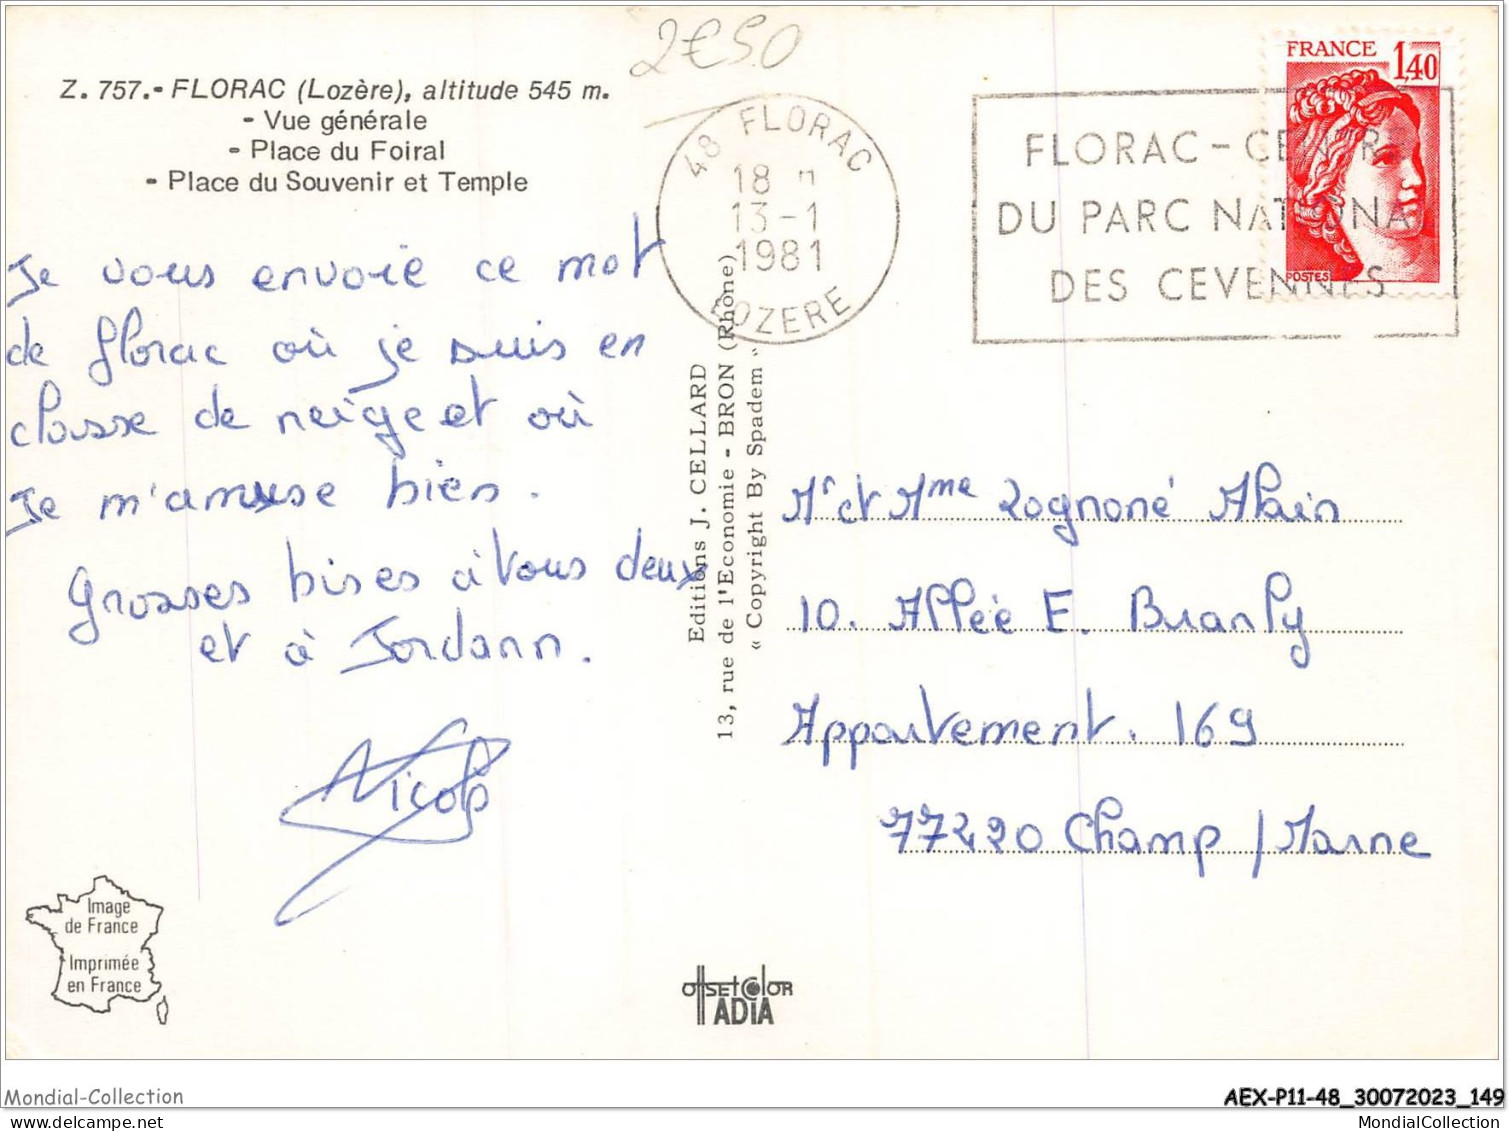 2€50
Z. 757.- FLORAC (Lozère), altitude 545 m.
- Vue générale
- Place du Foiral
- Place du Souvenir et Temple
48 FLORAC
18 H
13-1
1981
LOZERE
FLORAC - CENTRE
DU PARC NATIONAL
DES CEVENNES
FRANCE 1,40
POSTES
Je vous envoie ce mot
de florac où je suis en
classe de neige et où
Je m'amuse bien.
Grosses bises à vous deux
et à Jordann.
Nicole
Editions J. CELLARD
13, rue de l'Economie - BRON (Rhône)
« Copyright By Spadem »
Mr et Mme Rognoné Alain
10. Allée E. Branly
Appartement. 169
77220 Champ / Marne
Image
de France
Imprimée
en France
OffSET COLOR
IADIA
Mondial-Collection
AEX-P11-48_30072023_149
MondialCollection.com